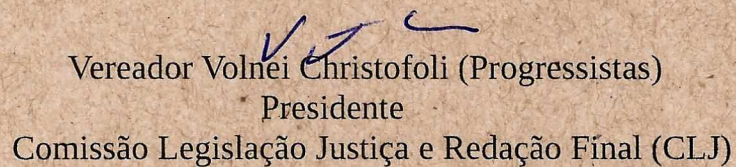 Vereador Volnei Christofoli (Progressistas)
Presidente
Comissão Legislação Justiça e Redação Final (CLJ)